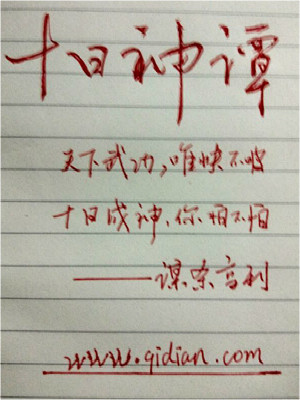 十日神谭
天下武功，唯快不破
十日成神，你怕不怕
——谋杀高利
www.qidian.com